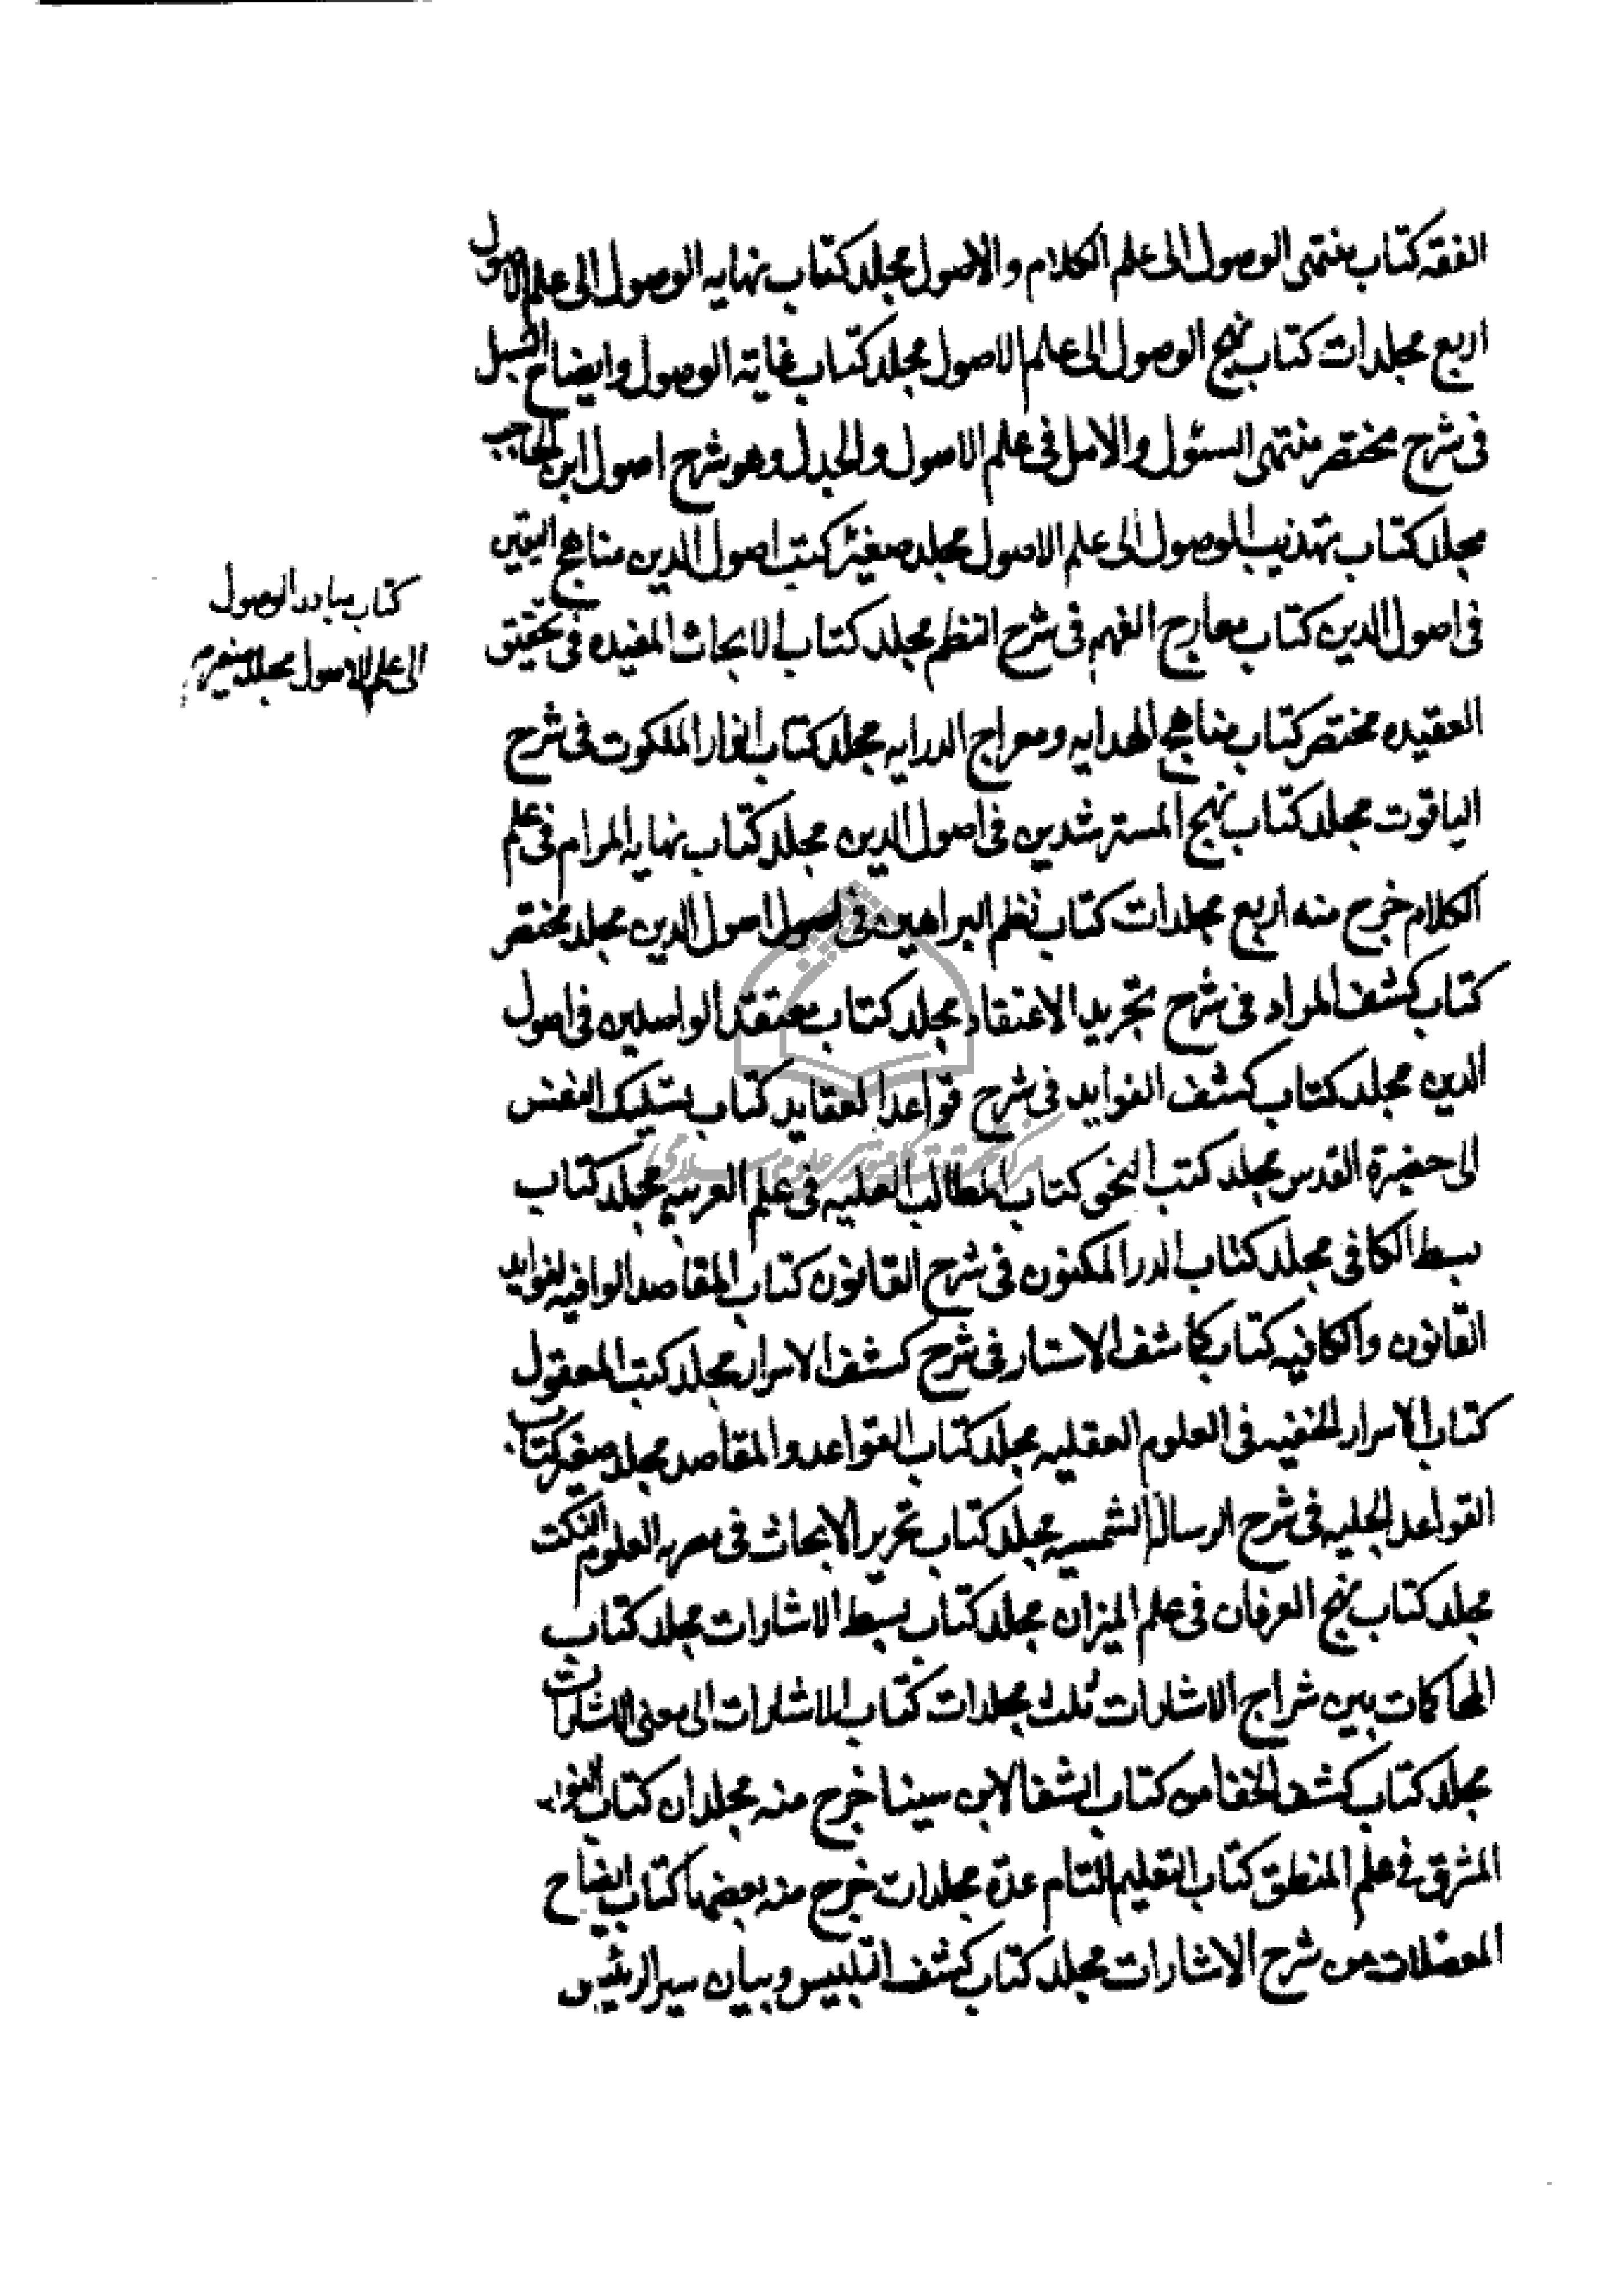 الفقه كتاب منتهى الوصول الى علم الكلام والاصول مجلد كتاب نهايه الوصول الى علم الاصول
اربع مجلدات كتاب نهج الوصول الى علم الاصول مجلد كتاب غاية الوصول وايضاح السبل
فى شرح مختصر منتهى السئول والامل فى علم الاصول والجدل وهو شرح اصول ابن الحاجب
مجلد كتاب تهذيب الوصول الى علم الاصول مجلد صغير كتب اصول الدين مناهج اليقين
فى اصول الدين كتاب معارج الفهم فى شرح النظم مجلد كتاب الابحاث المفيده فى تحقيق
العقيده مختصر كتاب مناهج الهدايه ومعراج الدرايه مجلد كتاب انوار الملكوت فى شرح
الياقوت مجلد كتاب نهج المسترشدين فى اصول الدين مجلد كتاب نهايه المرام فى علم
الكلام خرج منه اربع مجلدات كتاب نظم البراهين فى اصول اصول الدين مجلد مختصر
كتاب كشف المراد فى شرح تجريد الاعتقاد مجلد كتاب معتقد الواصلين فى اصول
الدين مجلد كتاب كشف الفوايد فى شرح قواعد العقايد كتاب تسليك النفس
الى حضيرة القدس مجلد كتب النحو كتاب المطالب العليه فى علم العربيه مجلد كتاب
بسط الكافى مجلد كتاب الدر المكنون فى شرح القانون كتاب المقاصد الوافيه لفوايد
القانون والكافيه كتاب كاشف الاستار فى شرح كشف الاسرار مجلد كتب المعقول
كتاب الاسرار الخفيه فى العلوم العقليه مجلد كتاب القواعد والمقاصد مجلد صغير كتاب
القواعد الجليه فى شرح الرسالة الشمسيه مجلد كتاب تحرير الابحاث فى معرفة العلوم الثلث
مجلد كتاب نهج العرفان فى علم الميزان مجلد كتاب بسط الاشارات مجلد كتاب
المحاكمات بين شراح الاشارات ثلث مجلدات كتاب الاشارات الى معنى الاشارات
مجلد كتاب كشف الخفا من كتاب الشفا لابن سينا خرج منه مجلدان كتاب النور
المشرق فى علم المنطق كتاب التعليم التام عدة مجلدات خرج منه بعضها كتاب ايضاح
المعضلات من شرح الاشارات مجلد كتاب كشف التلبيس وبيان سير الرئيس
كتاب مبادى الوصول
الى علم الاصول مجلد صغير